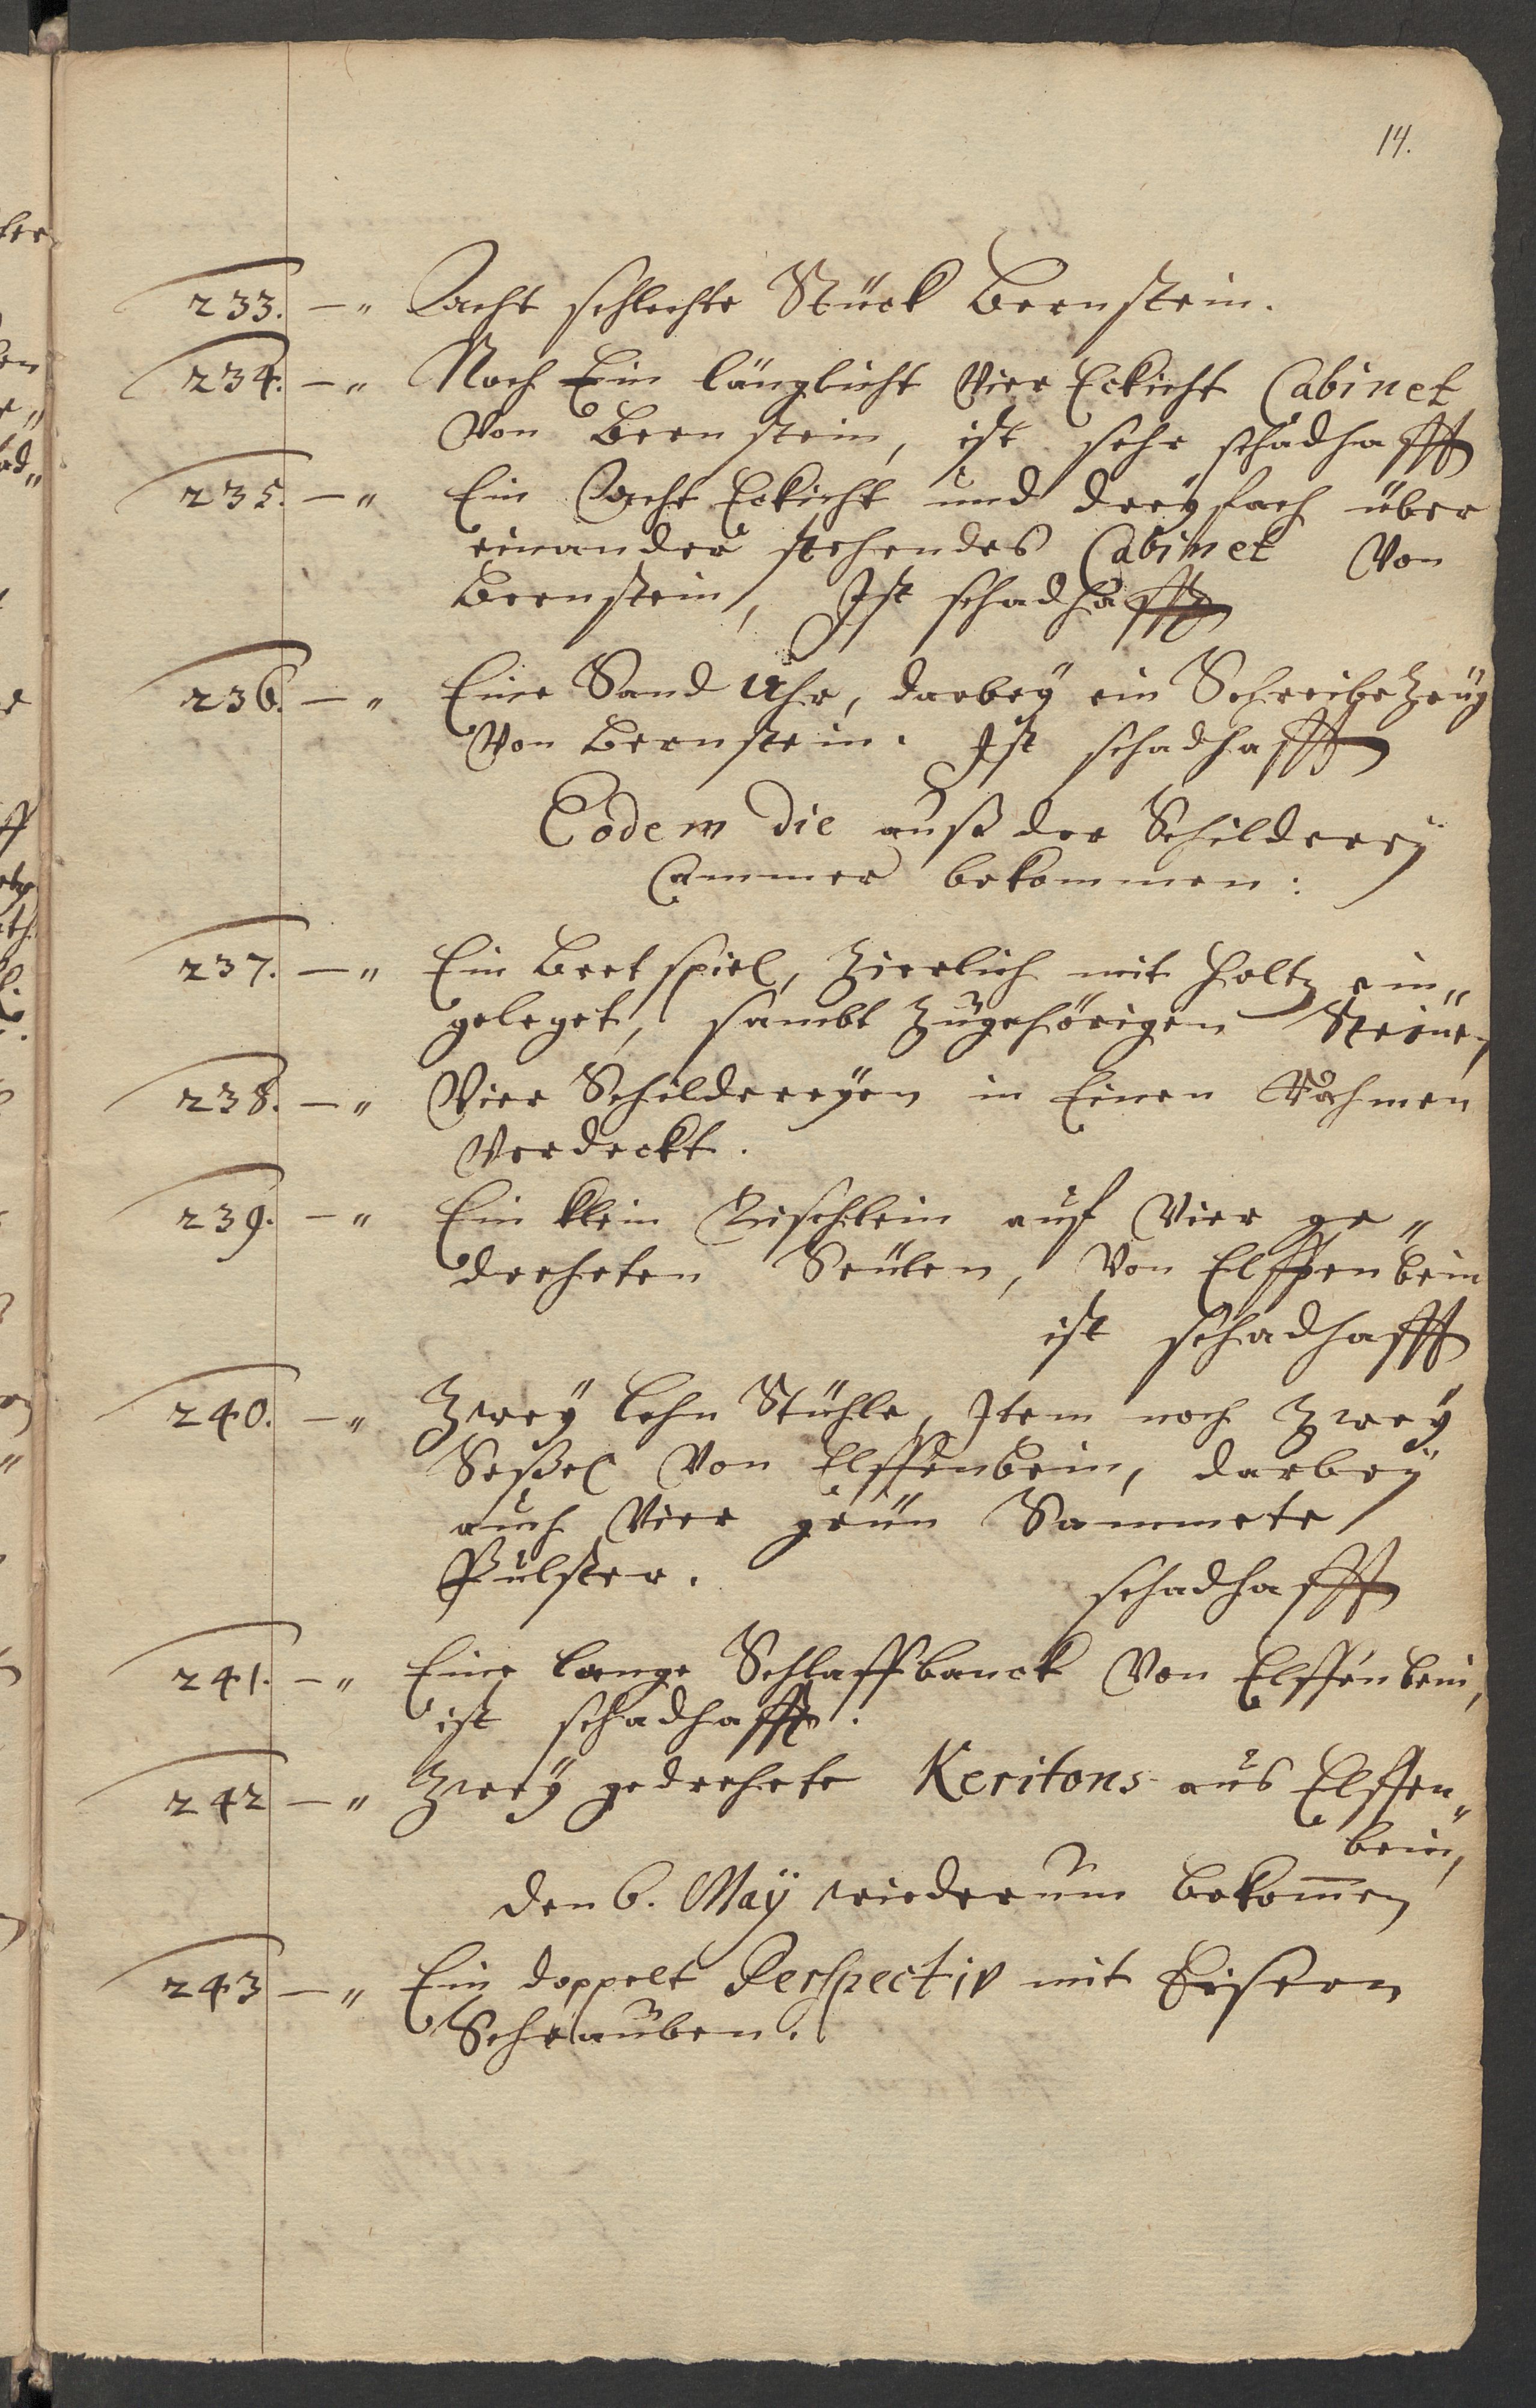 14.
233. — " Acht schlechte Stück Bernstein.
234. — " Noch Ein länglicht Vier Eckicht Cabinet
Von Bernstein, ist sehr schadhafft
235. — " Ein Acht Eckicht und dreyfach über
einander stehendes Cabinet Von
Bernstein, Ist schadhafft
236. — " Eine Sand Uhr, darbey ein Schreibezeug
Von Bernstein. Ist schadhafft
Eodem die auß der Schilderey
Cammer bekommen:
237. — " Ein Bret spiel, zierlich mit Holtz ein„
geleget, sambt zugehörigen Steine,
238. — " Vier Schildereyen in Einen Rahmen
Verdeckt.
239. — " Ein klein Tischlein auf Vier ge„
dreheten Seulen, Von Elffenbein
ist schadhafft
240. — " Zwey Lehn Stühle, Item noch zwey
Seßel Von Elffenbein, darbey
auch Vier grün Sammete
Pülster. schadhafft
241. — " Eine lange Schlaffbanck Von Elffenbein,
ist schadhafft.
242 — " Zwey gedrehete Keritons aus Elffen„
bein,
den 6. May wiederum bekom̄en
243 — " Ein doppelt Perspectiv mit Eisern
Schrauben.